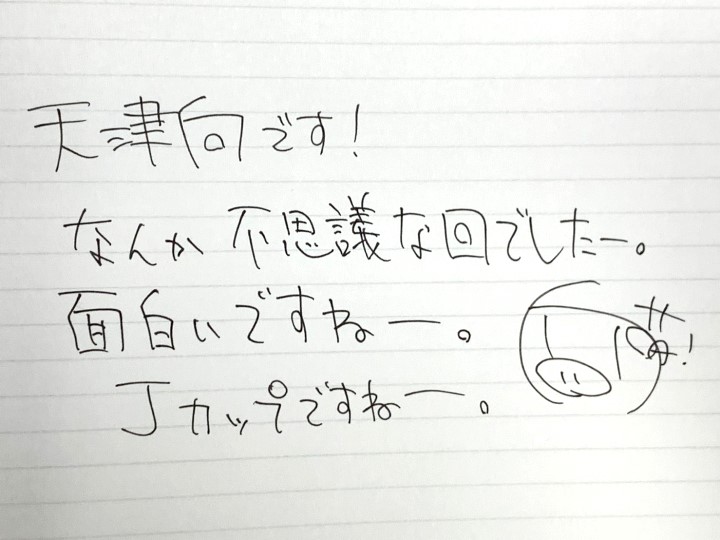 天津向です!
なんか不思議な回でしたー。
面白いですねー。
Jカップですねー。